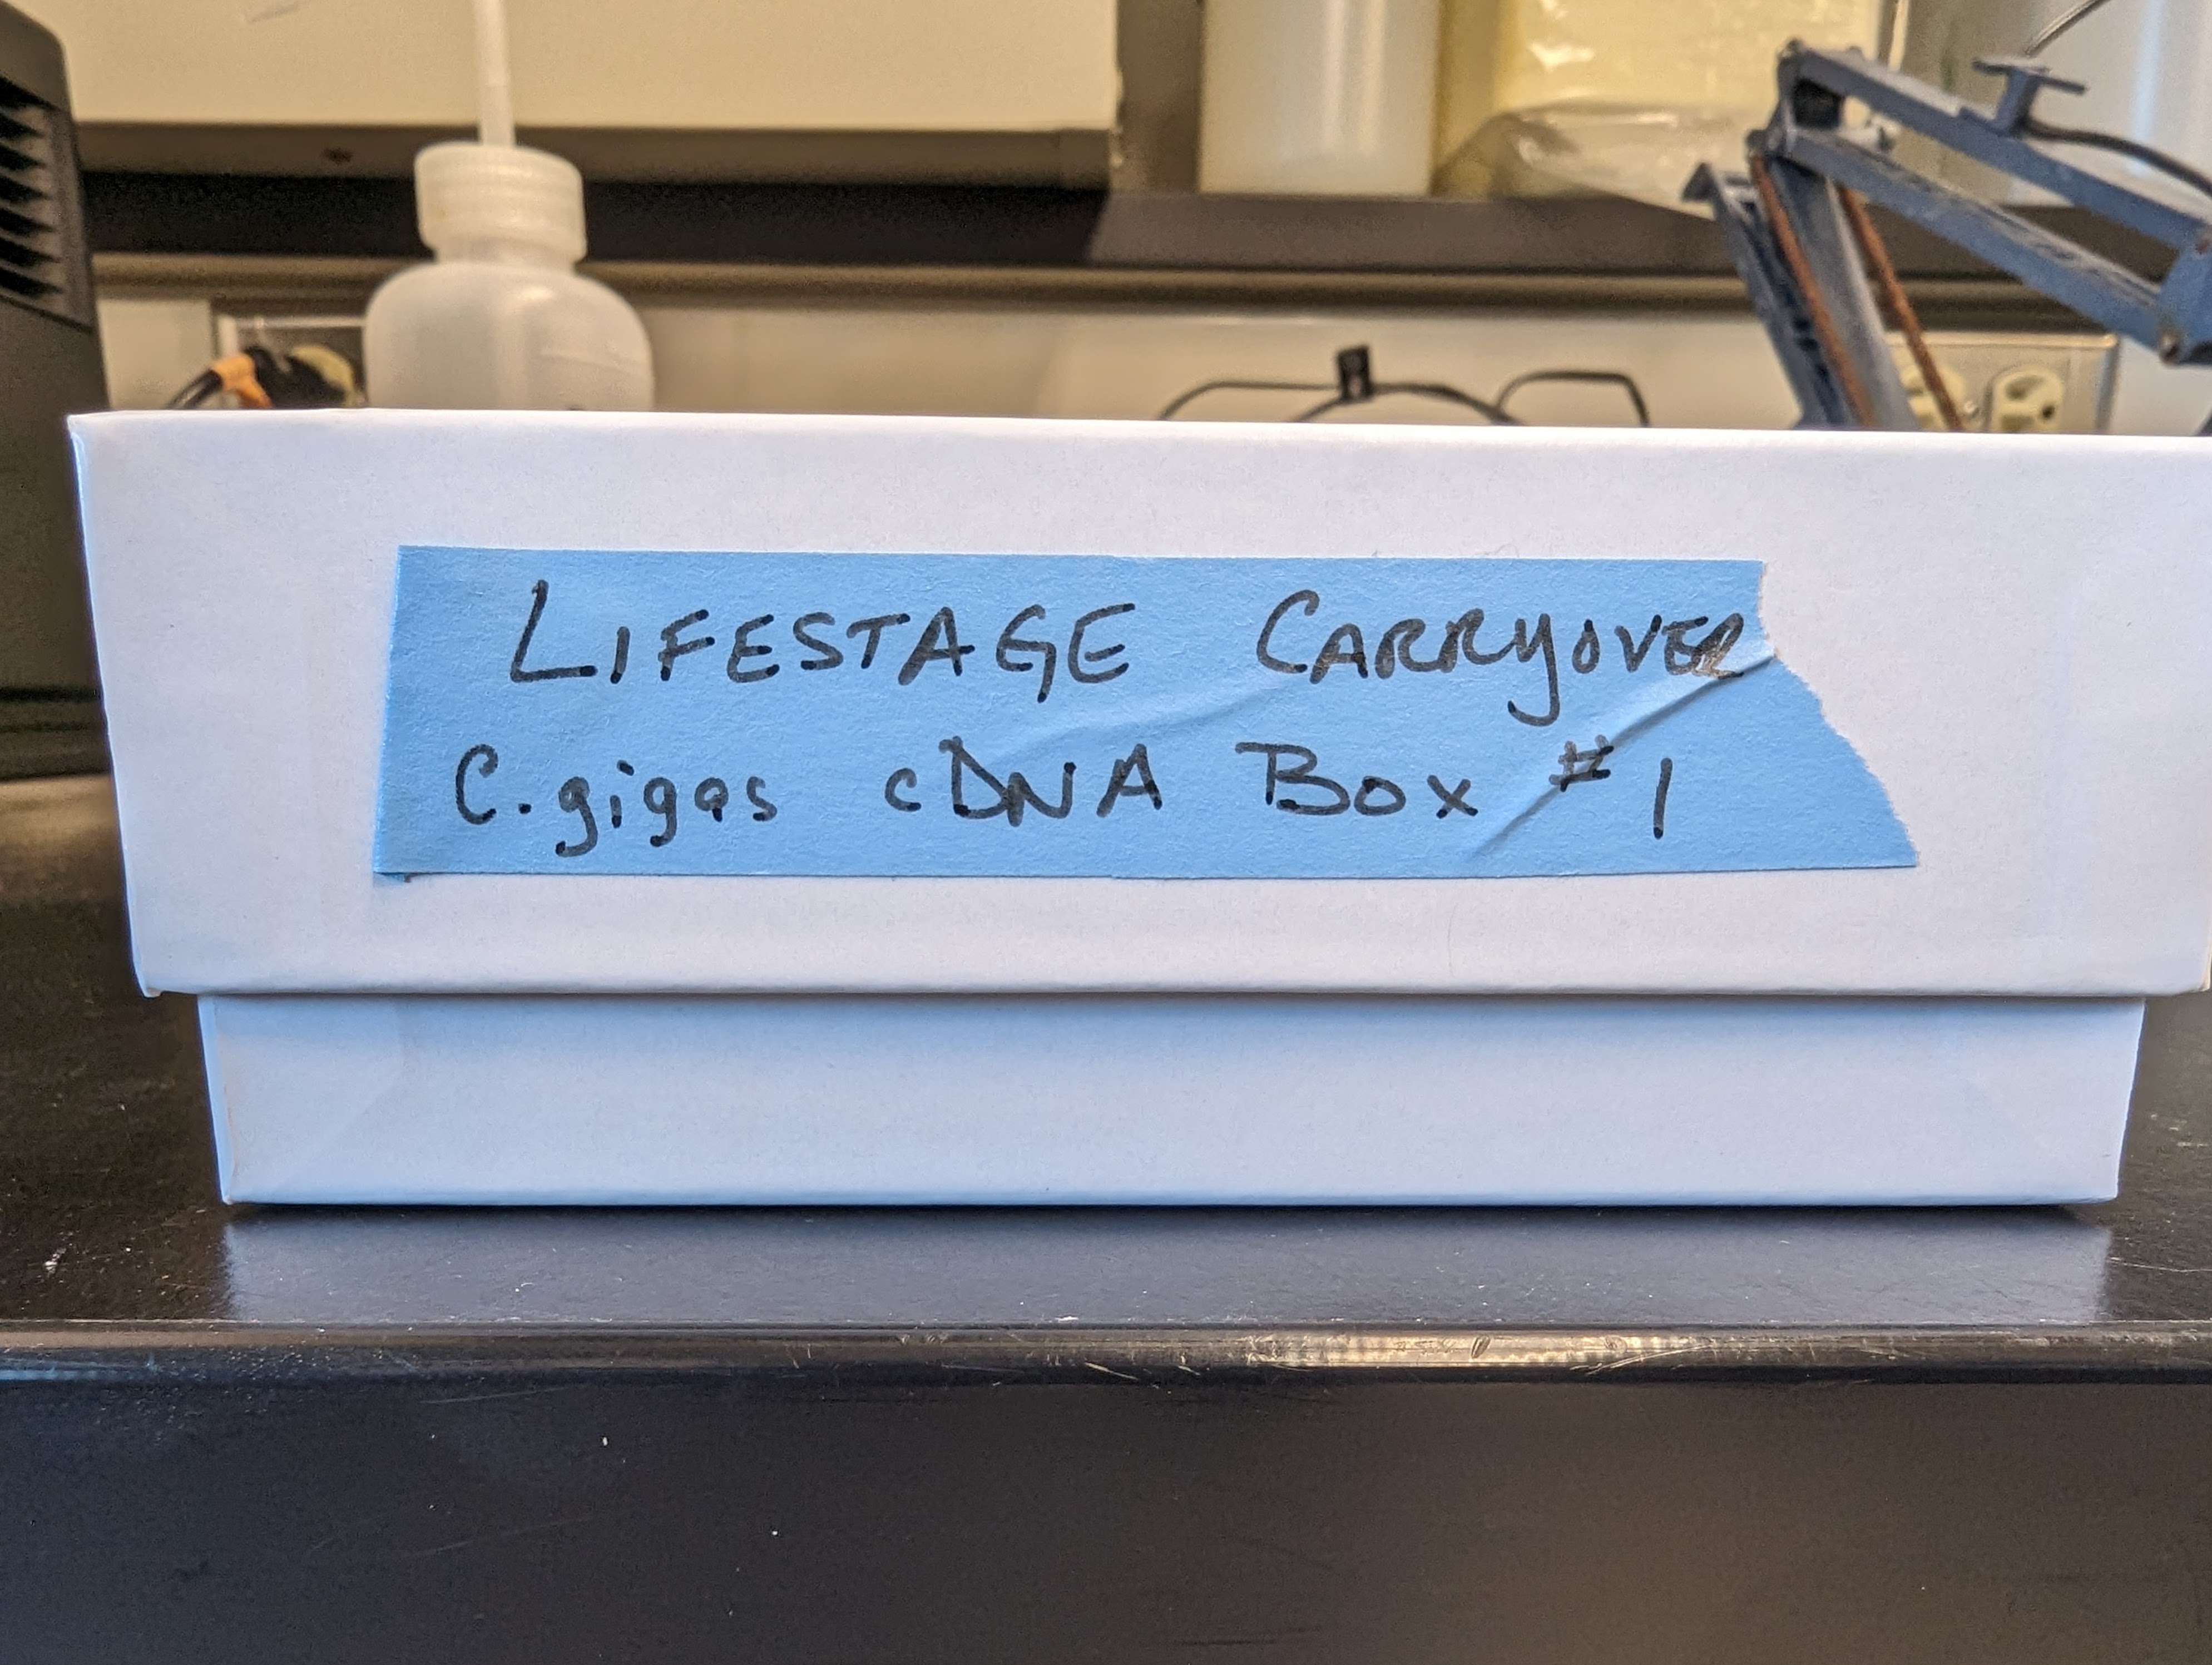 LIFESTAGE CARRYOVER
C. gigas cDNA Box #1